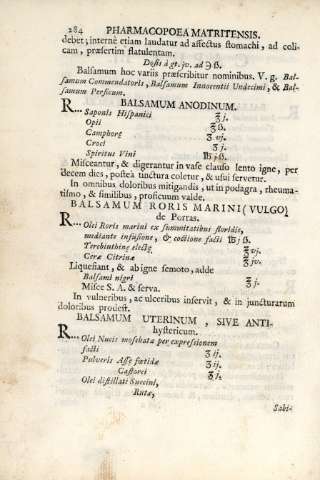 284 PHARMACOPOEA MATRITENSIS.
debet; internè etiam laudatur ad affectus stomachi, ad coli-
cam, præsertim flatulentam.
Dosis à gt. jv. ad ℈ ß.
Balsamum hoc variis præscribitur nominibus. V. g. Bal-
samum Commendatoris, Balsamum Innocentii Undecimi, & Bal-
samum Persicum.
BALSAMUM ANODINUM.
R... Saponis Hispanici ℥ j.
Opii ℥ ß.
Camphoræ ʒ vj.
Croci ʒ j.
Spiritus Vini ℔ j ß.
Misceantur, & digerantur in vase clauso lento igne, per
decem dies, postea tinctura coletur, & usui servetur.
In omnibus doloribus mitigandis, ut in podagra, rheuma-
tismo, & similibus, proficuum valde.
BALSAMUM RORIS MARINI (VULGO)
de Porras.
R... Olei Roris marini ex summitatibus floridis,
mediante infusione, & coctione facti ℔ j ß.
Terebinthinæ electæ ℥ vj.
Ceræ Citrinæ ℥ jv.
Liquefiant, & ab igne semoto, adde
Balsami nigri ℥ j.
Misce S. A. & serva.
In vulneribus, ac ulceribus inservit, & in juncturarum
doloribus prodest.
BALSAMUM UTERINUM, SIVE ANTI-
hystericum.
R... Olei Nucis moschatæ per expressionem
facti ʒ ij.
Pulveris Assæ fœtidæ ʒ j.
Castorei ʒ j.
Olei distillati Succini,
Rutæ,
Sabi-